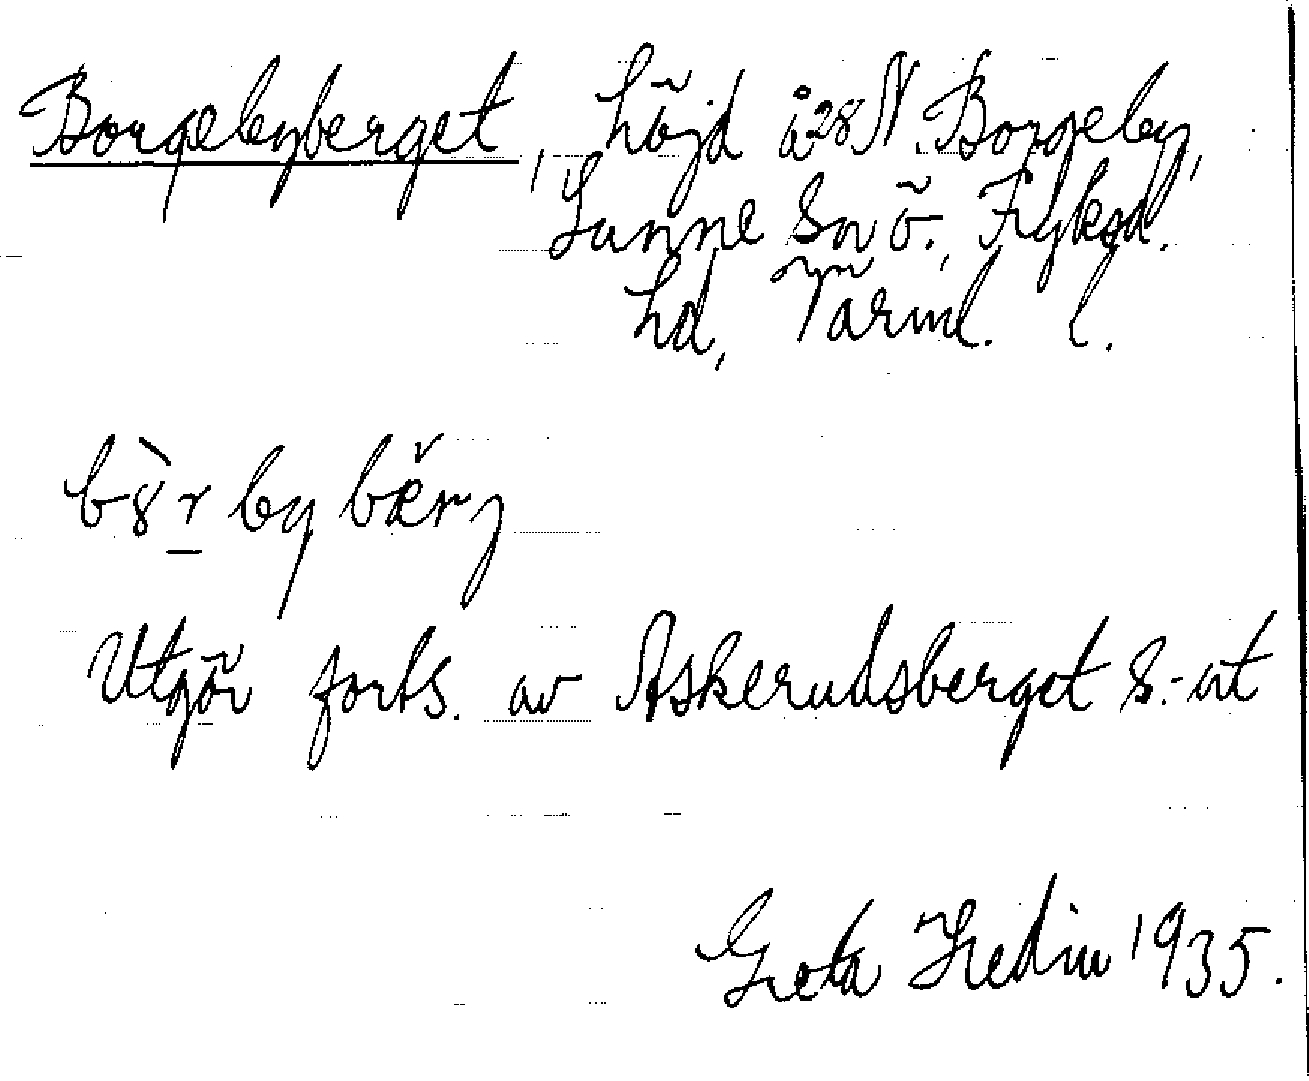 Borgebyberget, höjd å 28 N. Borgeby,
Sunne sn ö., Fryksd.
hd, Värml. l.
bȣ̀r by bæ̌rj
Utgör forts. av Askerudsberget s.-ut
Greta Hedin 1935.